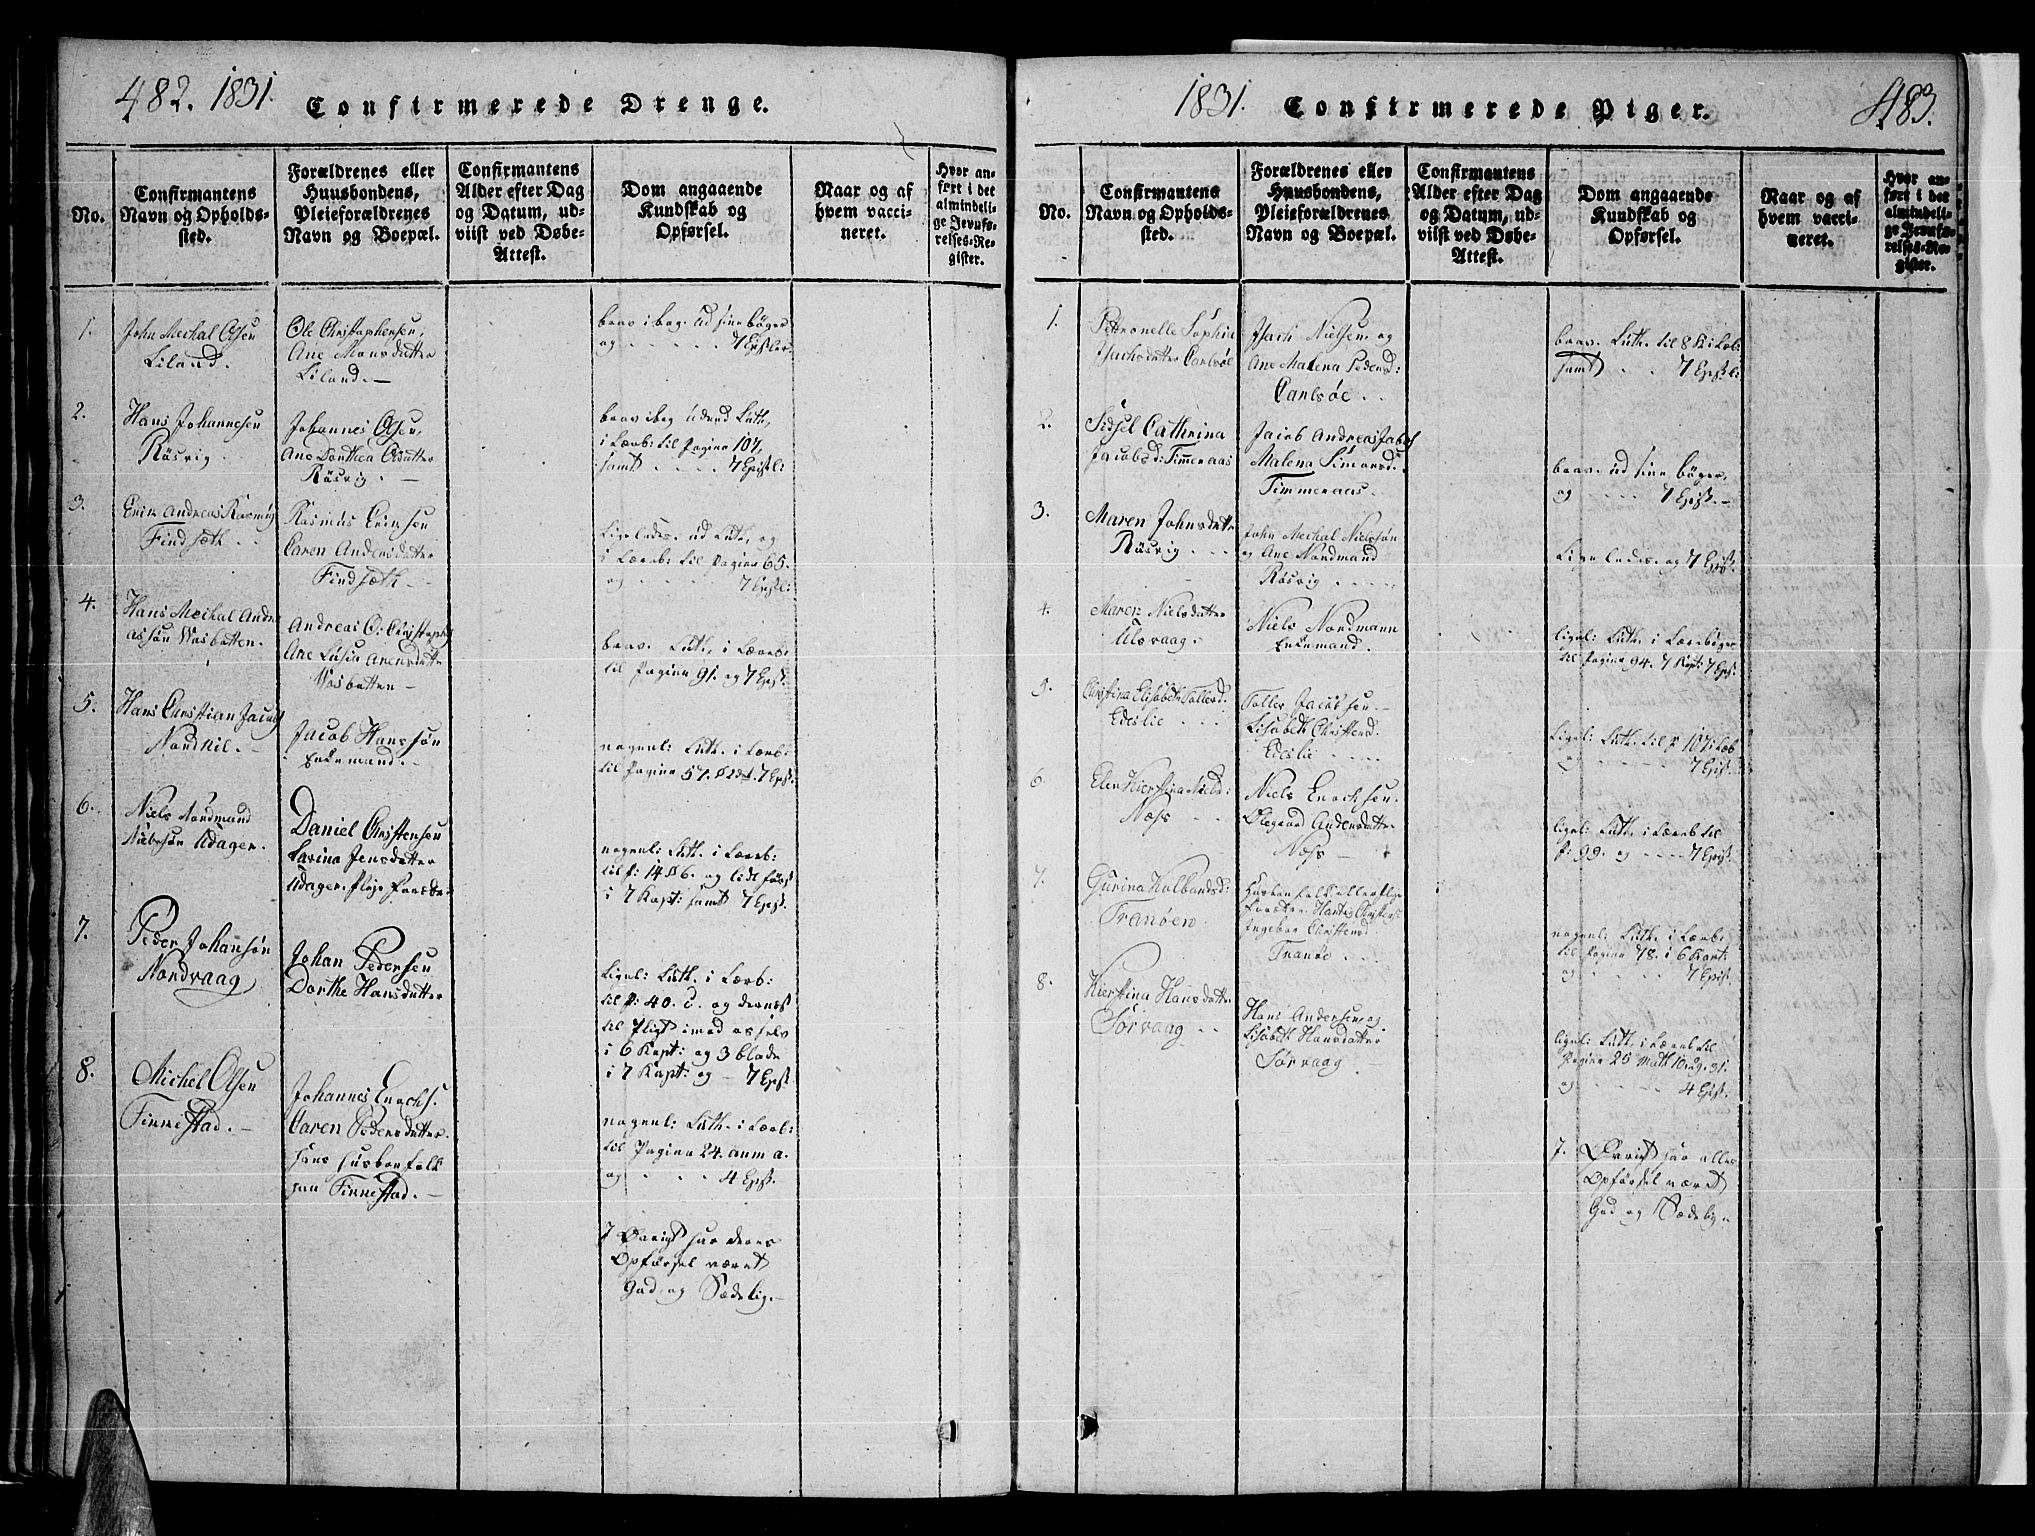 482. 1831. Confirmerede Drenge.
No.
Confirmantens
Navn og Opholds-
sted.
Forældrenes eller
Huusbondens,
Pleieforældrenes
Navn og Boepæl.
Confirmantens
Alder efter Dag
og Datum, ud-
viist ved Døbe-
Attest.
Dom angaaende
Kundskab og
Opførsel.
Naar og af
hvem vacci-
neret.
Hvor an-
ført i det
almindeli-
ge Jevnfø-
relses-Re-
gister.
1.
John Mechal Olsen
Liland.
Ole Christophersen,
Ane Monsdatter
Liland. —
brav i bog. ud sine bøger
og . . . . . 7 Epistler.
2.
Hans Johannesen
Røsvig
Johannes Olsen,
Ane Dorthea
Røsvig . —
Luth,
i Lærb: til Pagina 107,
samt . . . . 7 Epistl:
3.
Erik Andreas Rasmus
Findsæth . .
Rasmus Eriksen
Caren Andersdatter
Findsæth . .
Ligeledes. ud Luth, og
i Læreb: til Pagina 65.
og . . . 7 Epistl:
4.
Hans Mechal Andre
assøn Vasbotten.
Andreas O: Christoph
Ane Lusia
Vasbotten —
brav. Luth, i Læreb:
til Pagina 91. og 7 Epist.
5.
Hans Christian Jacobs
Nordkil. —
Jacob Hanssøn
Enkemand. —
nogenl: Luth. i Lærb:
til Pagina 57. 7 Epist.
6.
Niels Nordmand
Udager.
Daniel Christensen
Larina Jensdatter
Udager.
nogenl: Luth. i Læreb:
til p: 14 § 6. og lidt
i 7 Kapt: samt 7 Epist.
7.
Peder Johansøn
Nordvaag
Johan Pedersen
Dorthe Hansdatter
Ligel: Luth. i Lærb:
til p: 40. og dernæst
til Pligt imod os selv
i 6 Kapt: og 3 blade
i 7 Kapt: og — 7 Epist
8.
Michel Olsen
Finnestad. —
Johannes Enochs.
Caren Pedersdatter.
hans husbondfolk
paa Finnestad. —
nogenl: Luth. i Lærb:
til Pagina 24. anm a.
og . . . . 4 Epist.
I Øvrigt har deres
Opførsel været
God, og Sædelig. —
1831. Confirmerede Piger. 483.
No.
Confirmantens
Navn og Opholds-
sted.
Forældrenes eller
Huusbondens,
Pleieforældrenes
Navn og Boepæl.
Confirmantens
Alder efter Dag
og Datum, ud-
viist ved Døbe-
Attest.
Dom angaaende
Kundskab og
Opførsel.
Naar og af
hvem vacci-
neret.
Hvor an-
ført i det
almindeli-
ge Jevnfø-
relses-Re-
gister.
1.
Petronelle Sophia
Isachsdatter Carlsøe
Isach Nielsen og
Ane Malena Pedersd:
Carlsøe . .
brav. Luth. til 8 K: i Læb:
samt . . 7 Epistl:
2.
Sidsel Cathrina
Jacobsd: Timmeraas
Jacob Andreas Jacobs
Malena Simonsd.
Timmeraas.
brav. ud sine bøger,
og . . . . 7 Epist. —
3.
Maren Johnsdatter
Røsvig . . .
John Mechal Nielssøn
og Ane Nordmand
Røsvig . . . . .
Ligeledes. og 7 Epist.
4.
Maren Nielsdatter
Ulsvaag.
Niels Nordmann
Enkemand.
ligel: Luth. i Lærebøger
til Pagina 94. 7 Kapt: 7 Epist.
5.
Christina Elisabeth Tollevsd.
Edeslie . . .
Toller Jacobsen. —
Lisabeth Christensd.
Edeslie . .
Ligel: Luth. til p 107: i Læb
og . . . . . 7 Epist. —
6.
Elen Kierstina Nielsd:
Næss . .
Niels Enochsen.
Olegaard Andersdatter
Næss —
ligel: Luth. i Læreb til
p: 99. og . . . . 7 Epist.
7.
Gurina Kolbandsd:
Tranøen.
Husbondfolk eller Pleje
Forældre Christens
Ingebor Christensd
Tranøe . . .
nogenl: Luth. i Lærb:
til Pagina 78. i 6 Kapt:
og . . . . 7 Epist.
8.
Kierstina Hansdatter
Sørvaag . .
Hans Andersen, og
Lisabeth Hansdatter
Sørvaag
ligel: Luth. i Læreb til
Pagina 25
og . . . . . . 4 Epist.
I Øvrigt har alles
Opførsel været
God og Sædelig —